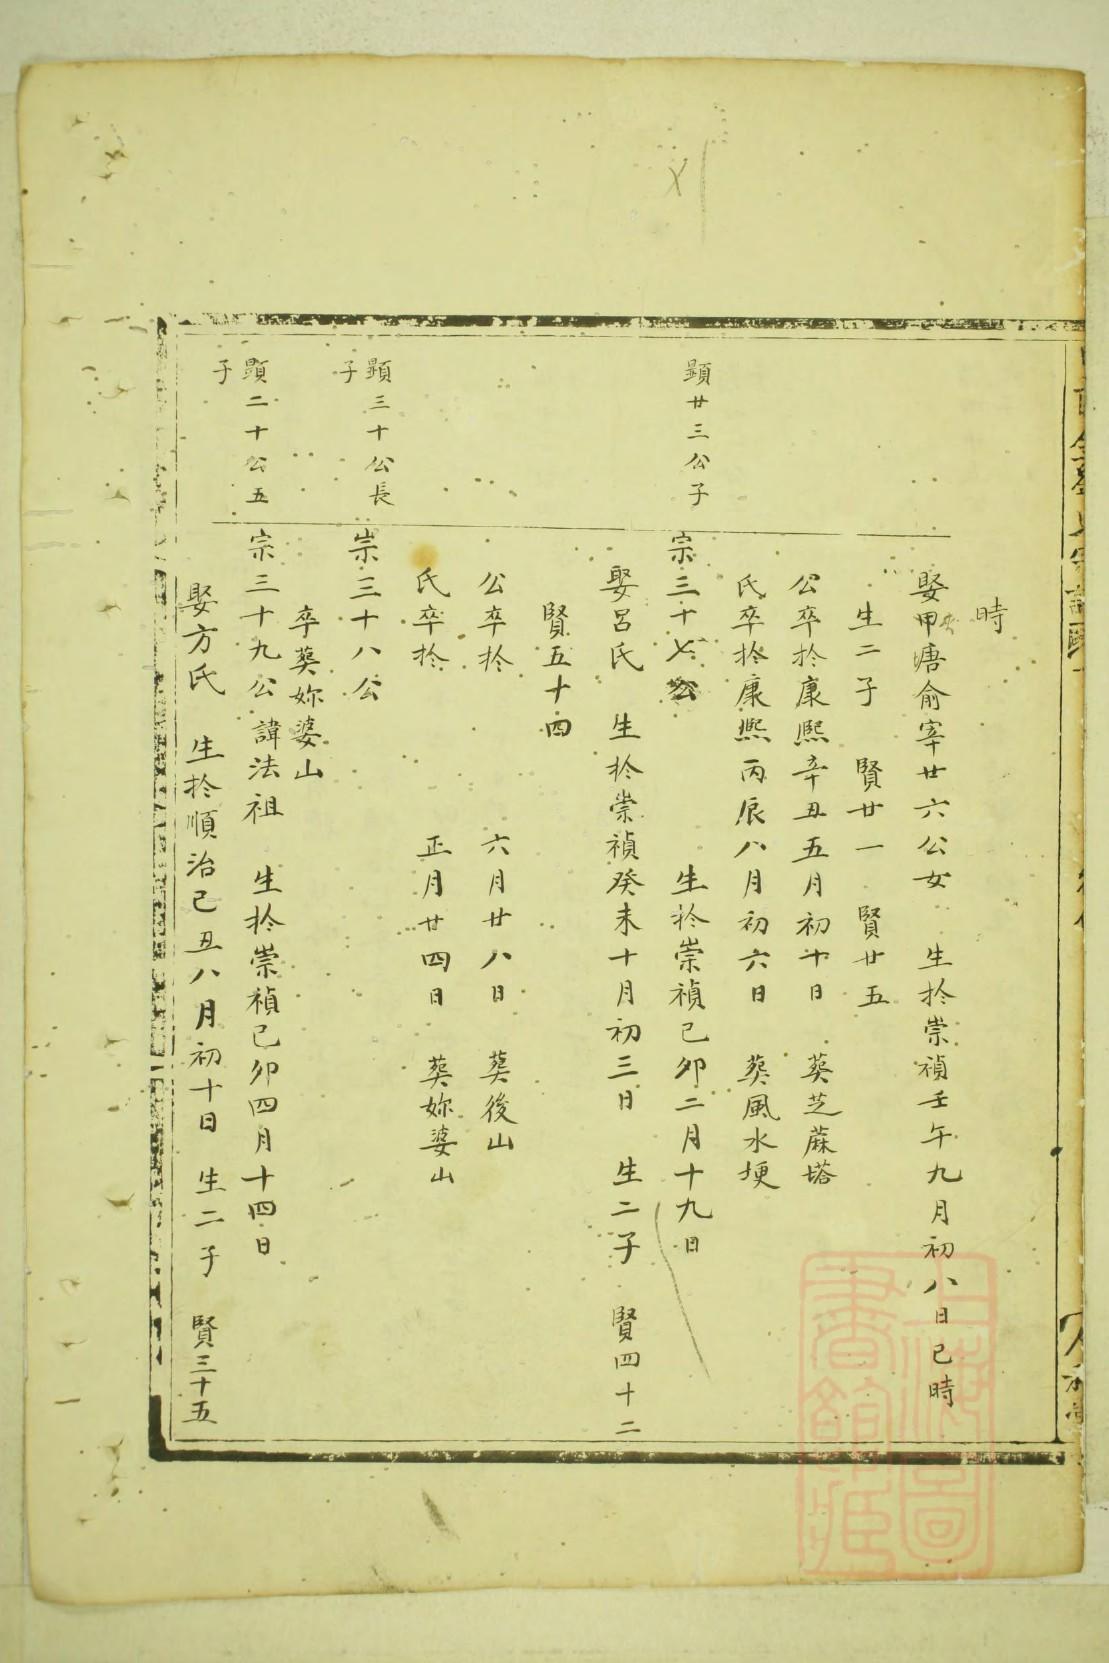 時
娶甲塘俞宰廿六公女　生於崇禎壬午九月初八日巳時
生二子　賢廿一　賢廿五
公卒於康熙辛丑五月初十日　葬芝蔴塔
氏卒於康熙丙辰八月初六日　葬風水埂
顯廿三公子
宗三十七公　生於崇禎己卯二月十九日
娶呂氏　生於崇禎癸未十月初三日　生二子　賢四十二
賢五十四
公卒於　六月廿八日　葬後山
氏卒於　正月廿四日　葬妳婆山
顯三十公長
子
崇三十八公
卒葬妳婆山
顯二十公五
子
宗三十九公諱法祖　生於崇禎己卯四月十四日
娶方氏　生於順治己丑八月初十日　生二子　賢三十五
上海圖
書館藏